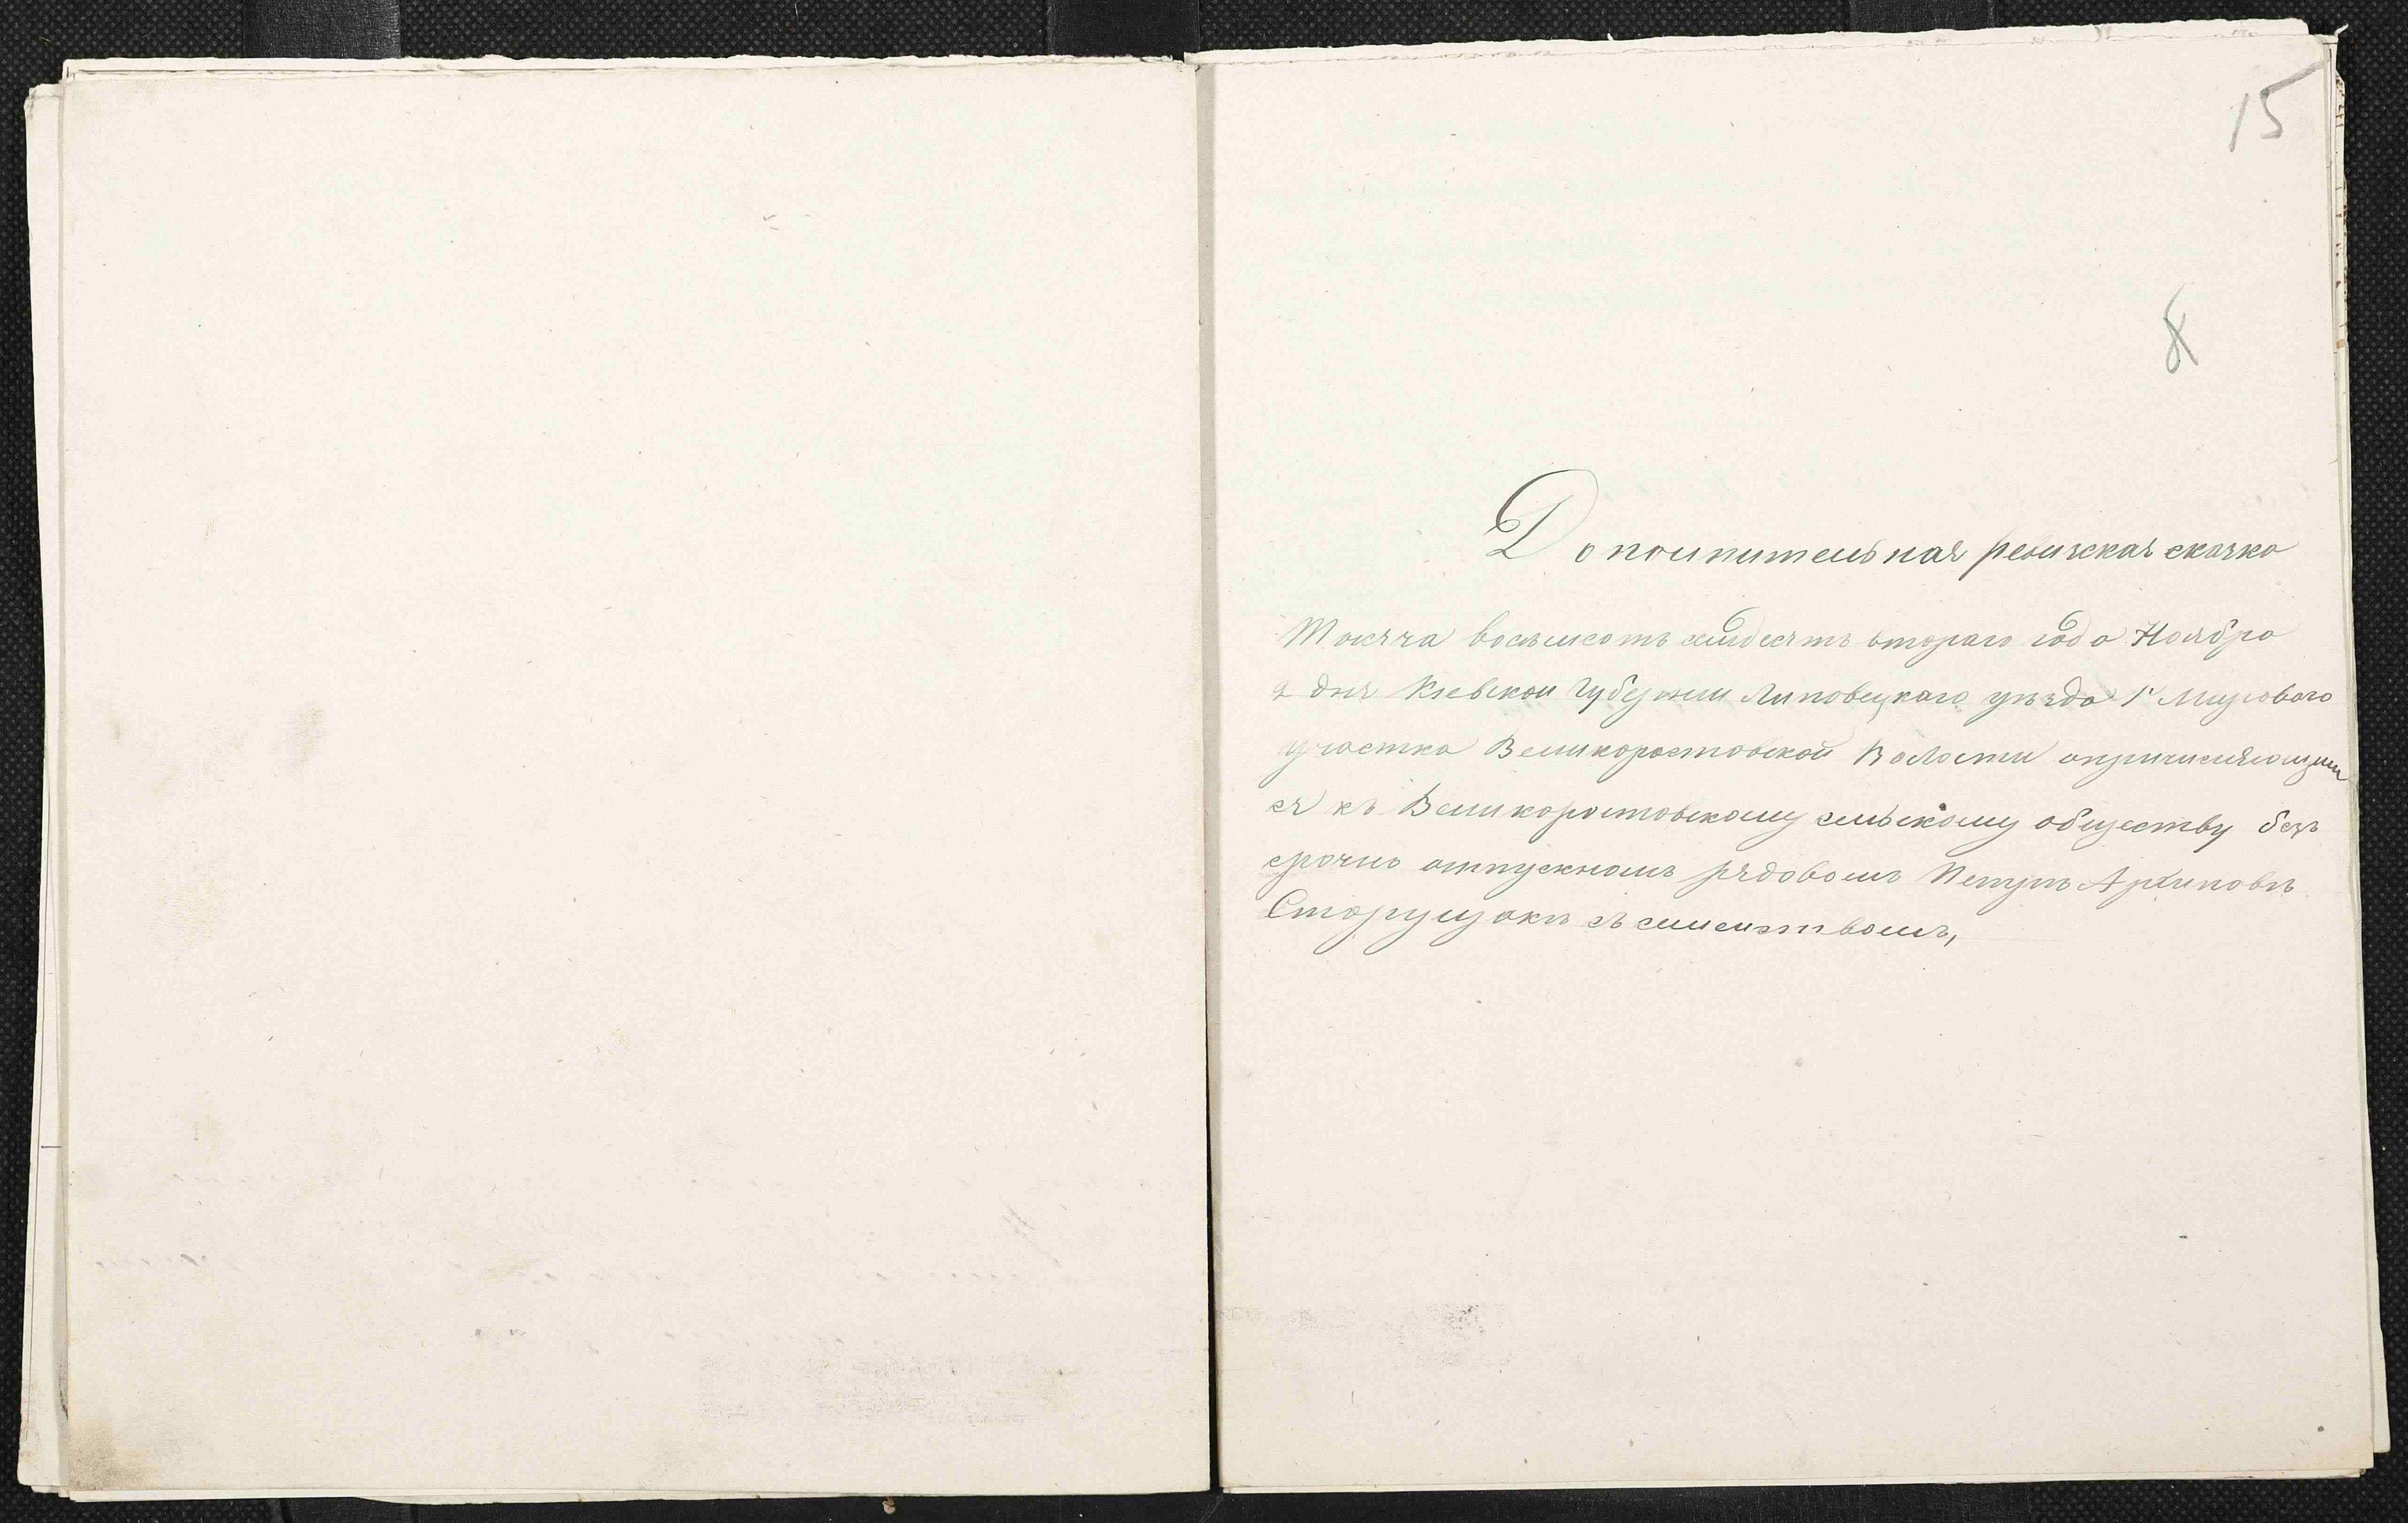 15
8
Дополнительная ревизская сказка
Тысяча восемьсотъ семдесятъ втораго года Ноября
2 дня Кіевской Губерніи Липовецкаго уѣзда 1 Мироваго
участка Великоростовской Волости опричисляющим
ся къ Великоростовскому сельскому обществу без
срочно отпускномъ рядовомъ Петрѣ Архиповѣ
Сторущакѣ съ семействомъ,